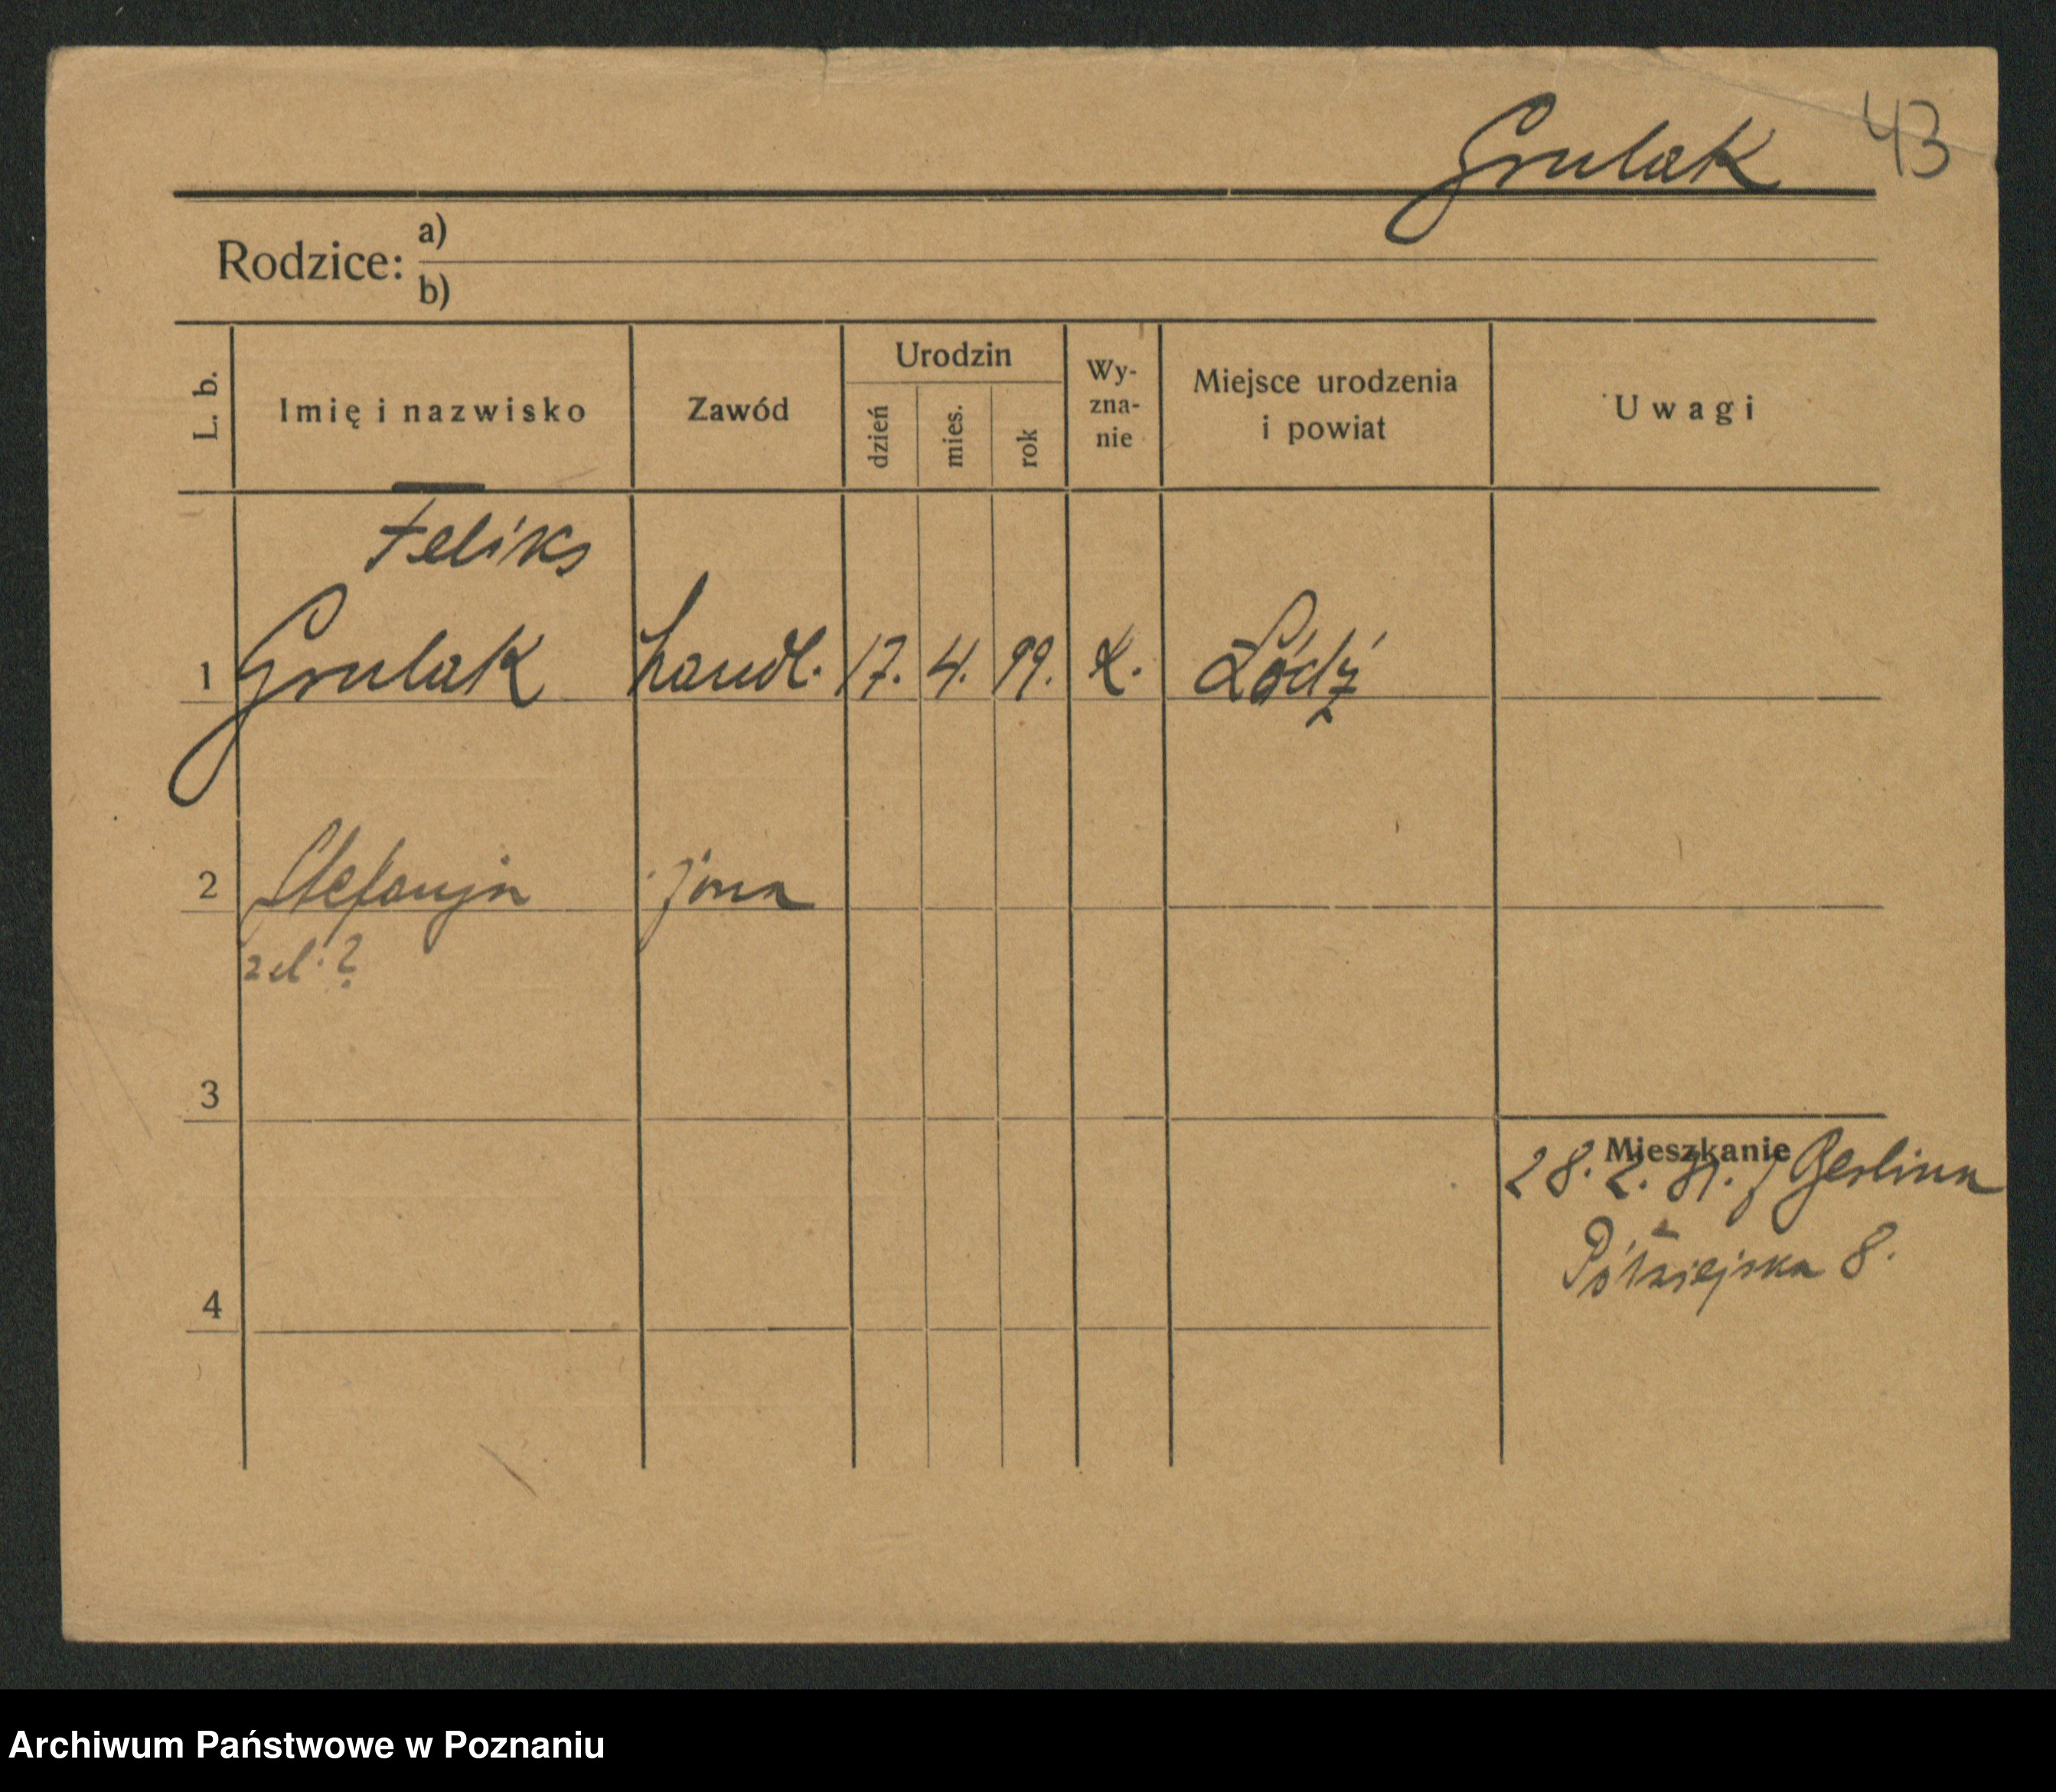 Grulak 43
Rodzice: a)
b)
L. b.
Imię i nazwisko
Zawód
Urodzin
dzień
mies.
rok
Wy-
zna-
nie
Miejsce urodzenia
i powiat
Uwagi
Feliks
1 Grulak handl. 17. 4. 99. k. Łódź
2 Stefanja żona
3
Mieszkanie
28. 2. 31. z Berlina
Półwiejska 8.
4
Archiwum Państwowe w Poznaniu